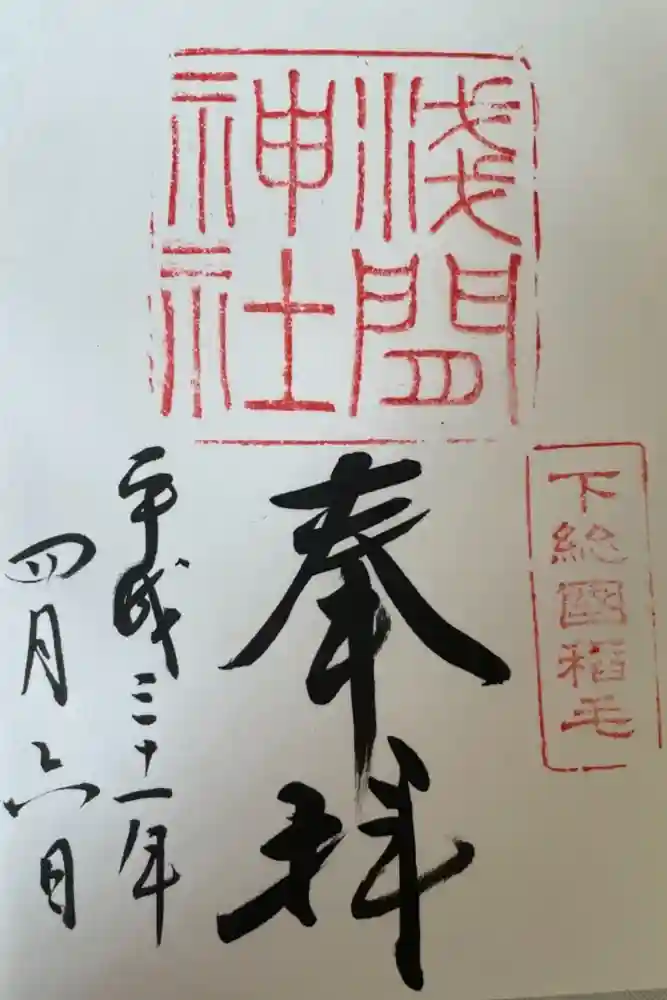 淺間
神社
下総國稲毛
奉拝
平成三十一年
四月六日